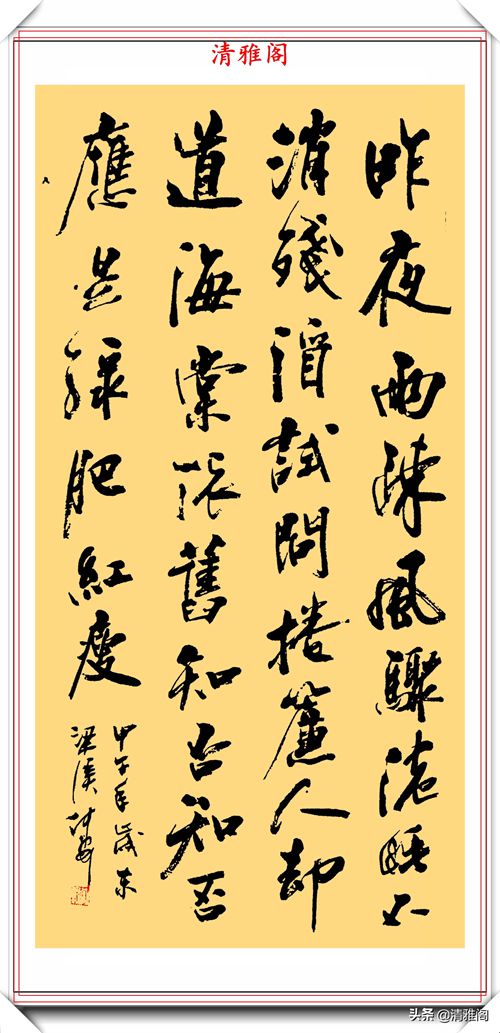 清雅阁
昨夜雨疎風驟濃睡不
消殘酒試問捲簾人却
道海棠依舊知否知否
應是綠肥紅瘦
甲子年歲
梁溪
头条 @清雅阁